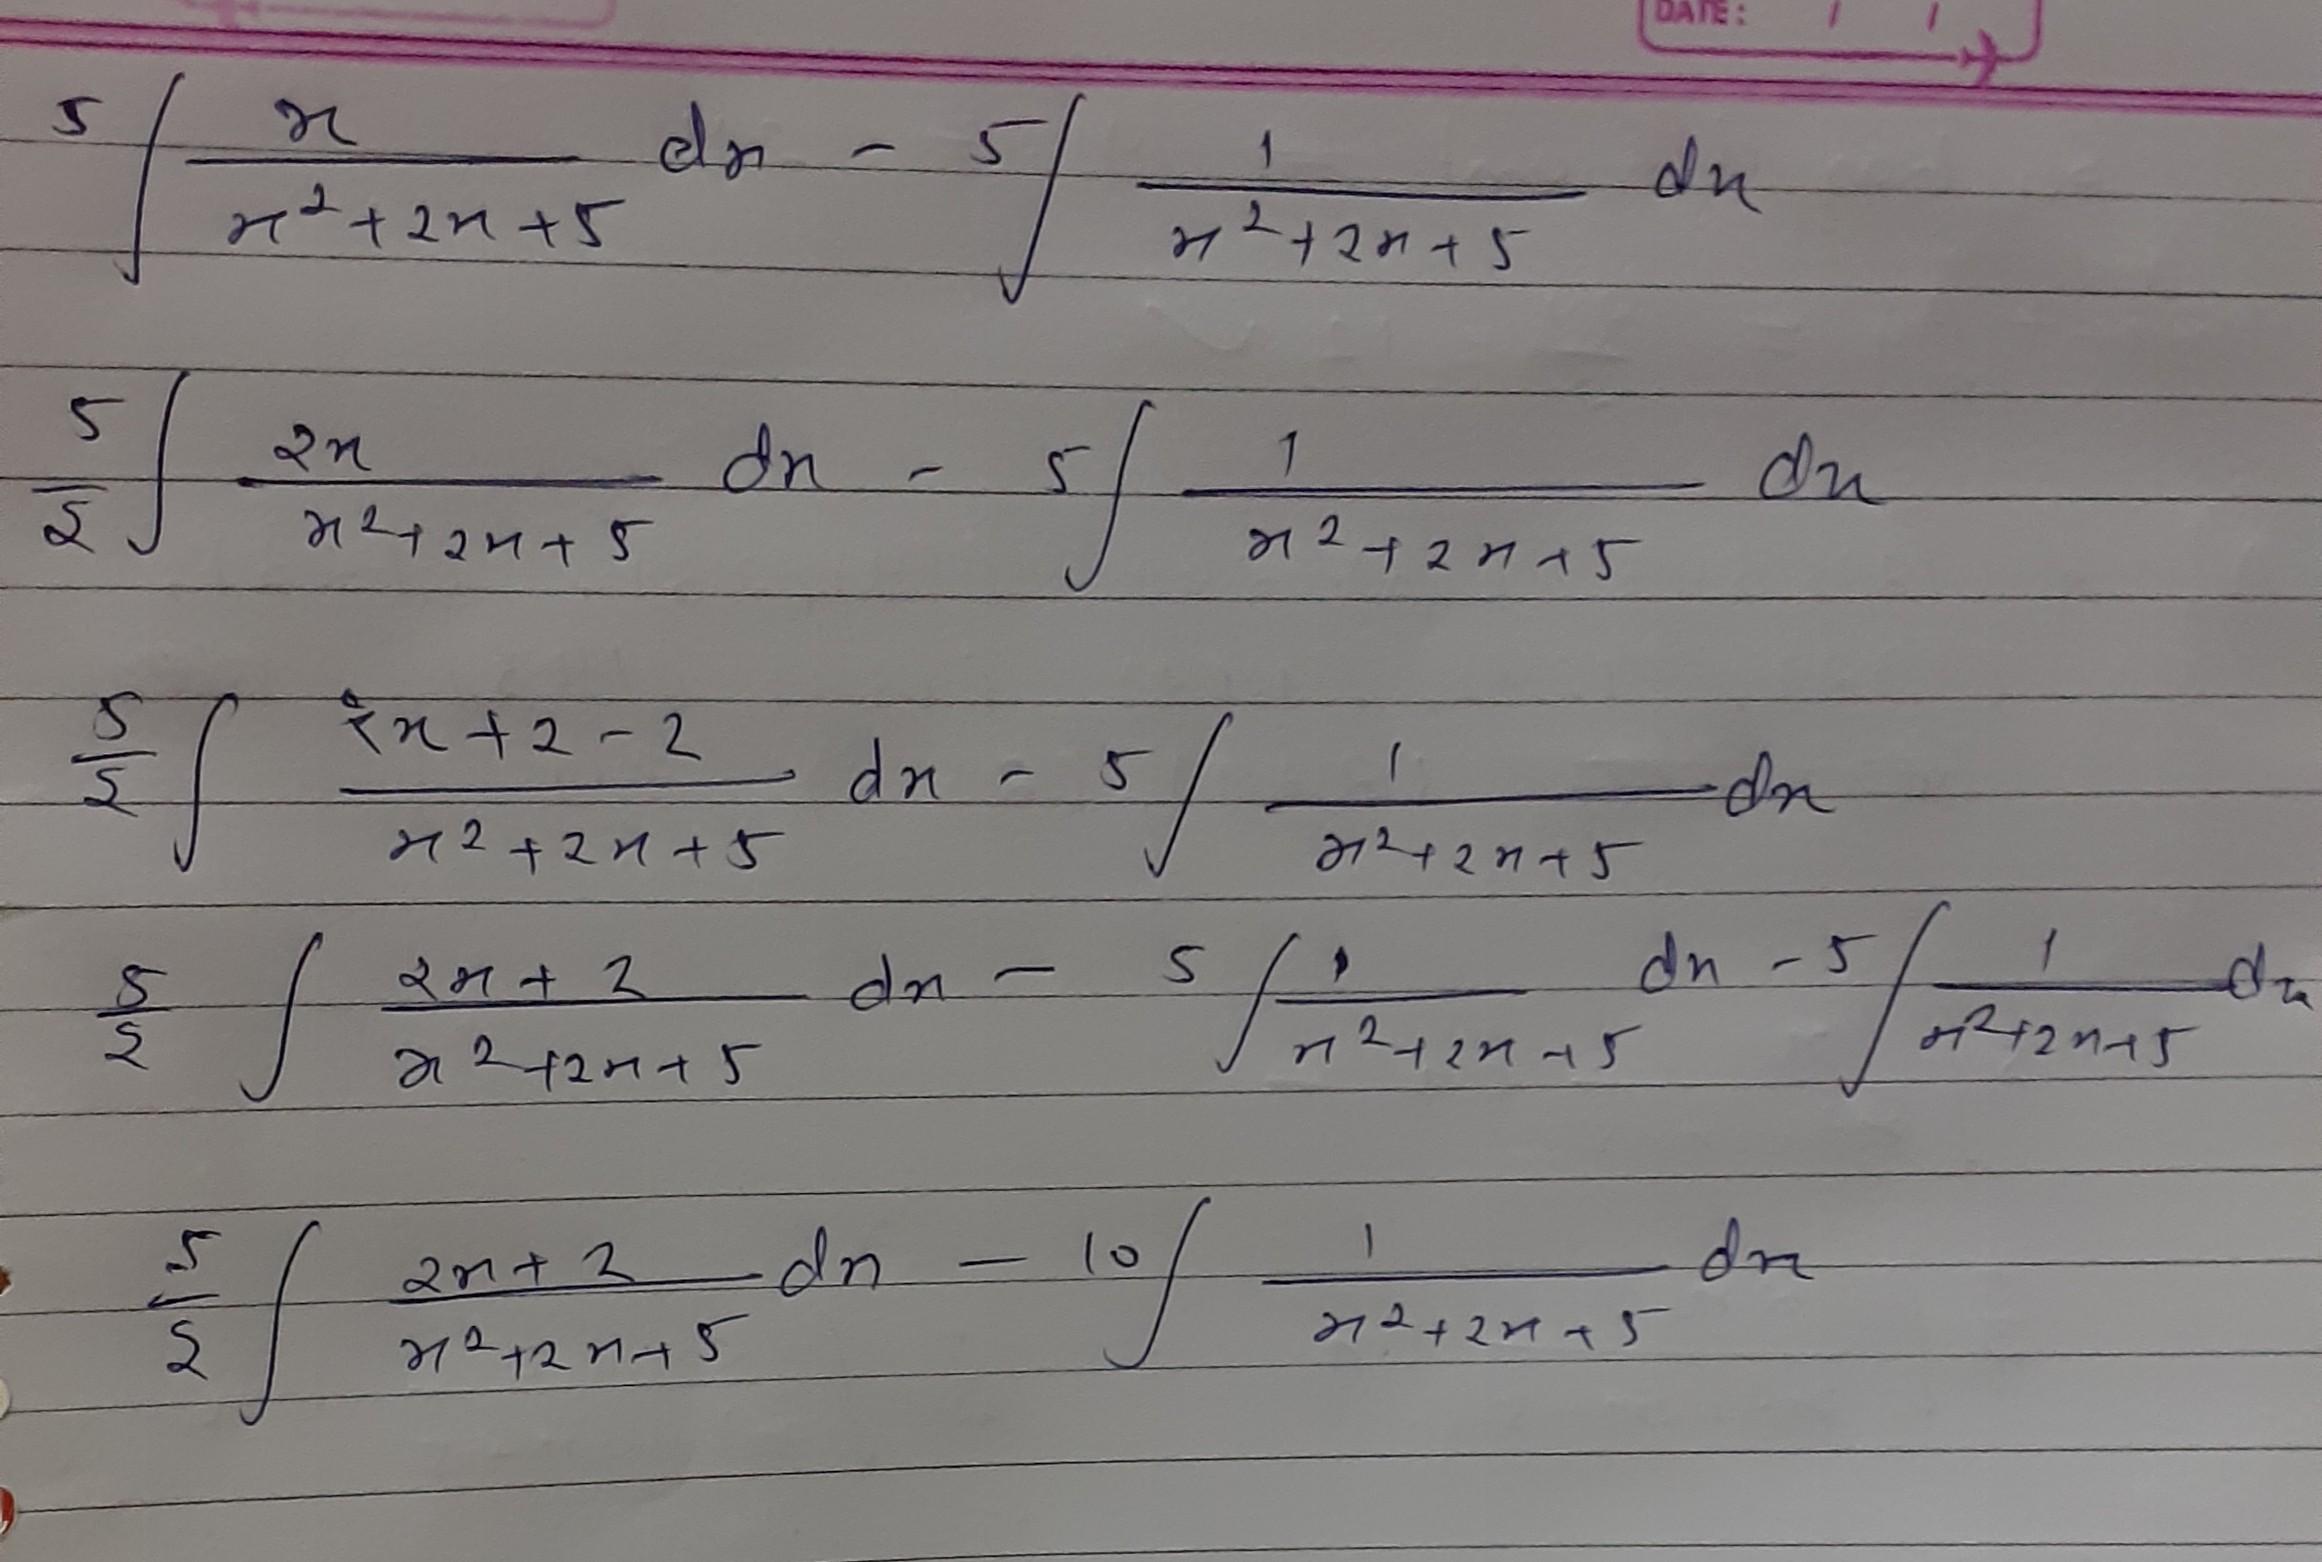 DATE: / /
5 ∫ x/(x²+2x+5) dx - 5 ∫ 1/(x²+2x+5) dx
5/2 ∫ 2x/(x²+2x+5) dx - 5 ∫ 1/(x²+2x+5) dx
5/2 ∫ (2x+2-2)/(x²+2x+5) dx - 5 ∫ 1/(x²+2x+5) dx
5/2 ∫ (2x+2)/(x²+2x+5) dx - 5 ∫ 1/(x²+2x+5) dx - 5 ∫ 1/(x²+2x+5) dx
5/2 ∫ (2x+2)/(x²+2x+5) dx - 10 ∫ 1/(x²+2x+5) dx